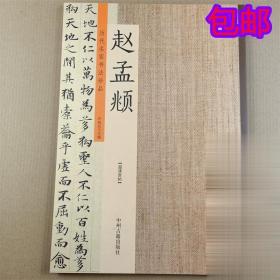 包邮
历代名家书法珍品
赵孟頫
天地不仁以萬物為芻
狗聖人不仁以百姓為芻
狗天地之間其猶橐籥乎虛而不屈動而愈
中州古籍出版社